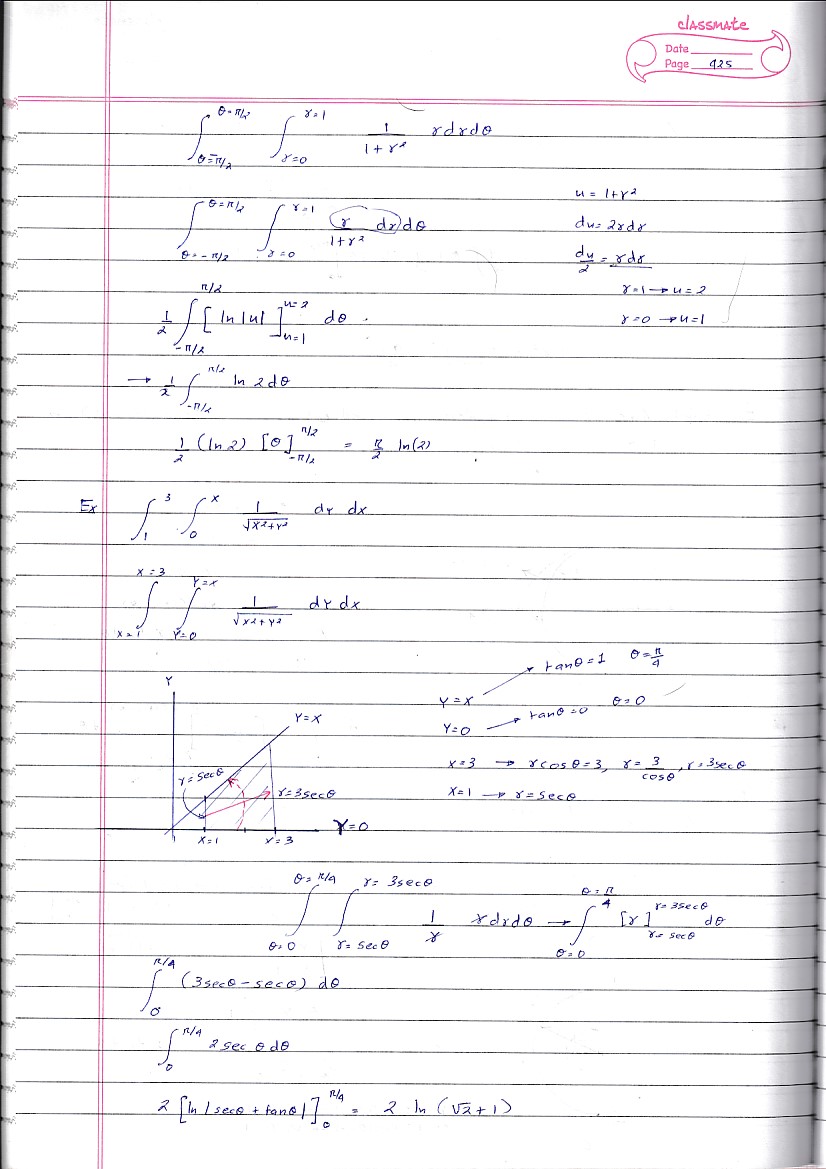 classmate
Date
Page 425
∫_{θ=-π/2}^{θ=π/2} ∫_{r=0}^{r=1} 1/(1+r²) r dr dθ
∫_{θ=-π/2}^{θ=π/2} ∫_{r=0}^{r=1} r/(1+r²) dr dθ
u = 1+r²
du = 2rdr
du/2 = rdr
r=1 → u=2
r=0 → u=1
1/2 ∫_{-π/2}^{π/2} [ln|u|]_{u=1}^{u=2} dθ
→ 1/2 ∫_{-π/2}^{π/2} ln 2 dθ
1/2 (ln 2) [θ]_{-π/2}^{π/2} = π/2 ln(2)
Ex ∫_1^3 ∫_0^x 1/√(x²+y²) dy dx
∫_{x=1}^{x=3} ∫_{y=0}^{y=x} 1/√(x²+y²) dy dx
y=x → tanθ=1 θ=π/4
y=0 → tanθ=0 θ=0
x=3 → r cosθ=3, r=3/cosθ, r=3secθ
x=1 → r=secθ
Y
Y=X
r=secθ
r=3secθ
Y=0
X=1 X=3
∫_{θ=0}^{θ=π/4} ∫_{r=secθ}^{r=3secθ} 1/r r dr dθ → ∫_{θ=0}^{θ=π/4} [r]_{r=secθ}^{r=3secθ} dθ
∫_0^{π/4} (3secθ-secθ) dθ
∫_0^{π/4} 2 sec θ dθ
2 [ln|secθ + tanθ|]_0^{π/4} = 2 ln(√2+1)